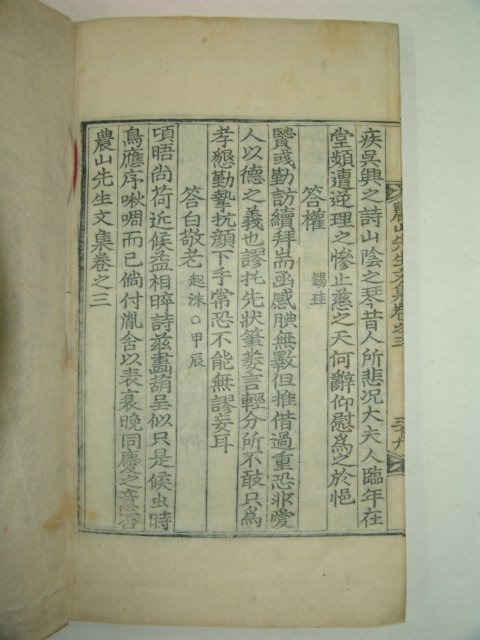 農山先生文集卷之三
三十九
疾吳興之詩山陰之琴昔人所悲况大夫人臨年在
堂頗遭逆理之慘止慈之天何辭仰慰爲之於悒
答權 錫珪
賢或勤訪續拜耑函感腆無斁但推借過重恐非愛
人以德之義也謬托先狀筆萎言輕分所不敢只爲
孝懇勤摯抗顔下手常恐不能無謬妄耳
答白敬老 起洙○甲辰
頃晤尚荷近候益相晬詩玆畵葫呈似只是候虫時
鳥應序啾啁而已倘付胤舍以表衰晩同慶之意否
農山先生文集卷之三